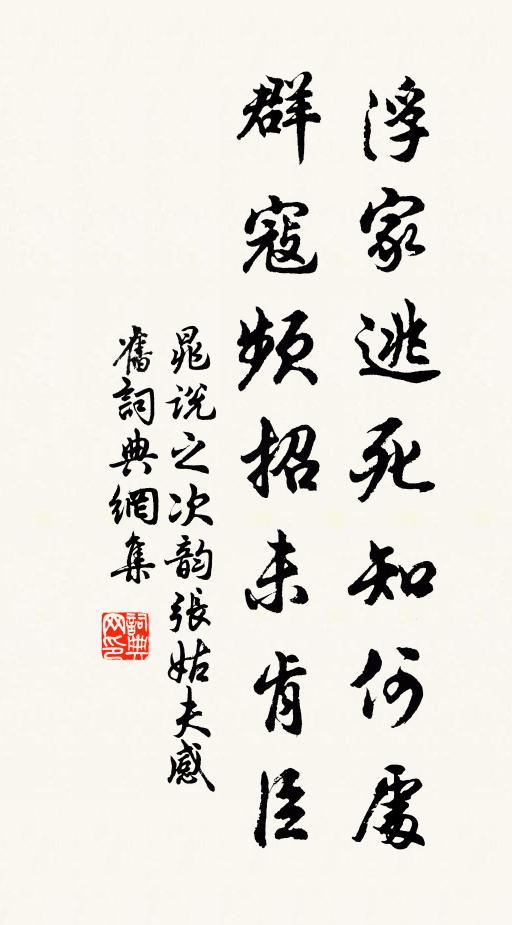 浮家逃死知何處
群寇頻招未肯臣
晁说之次韵張姑夫感
舊詞典網集
詞典网印